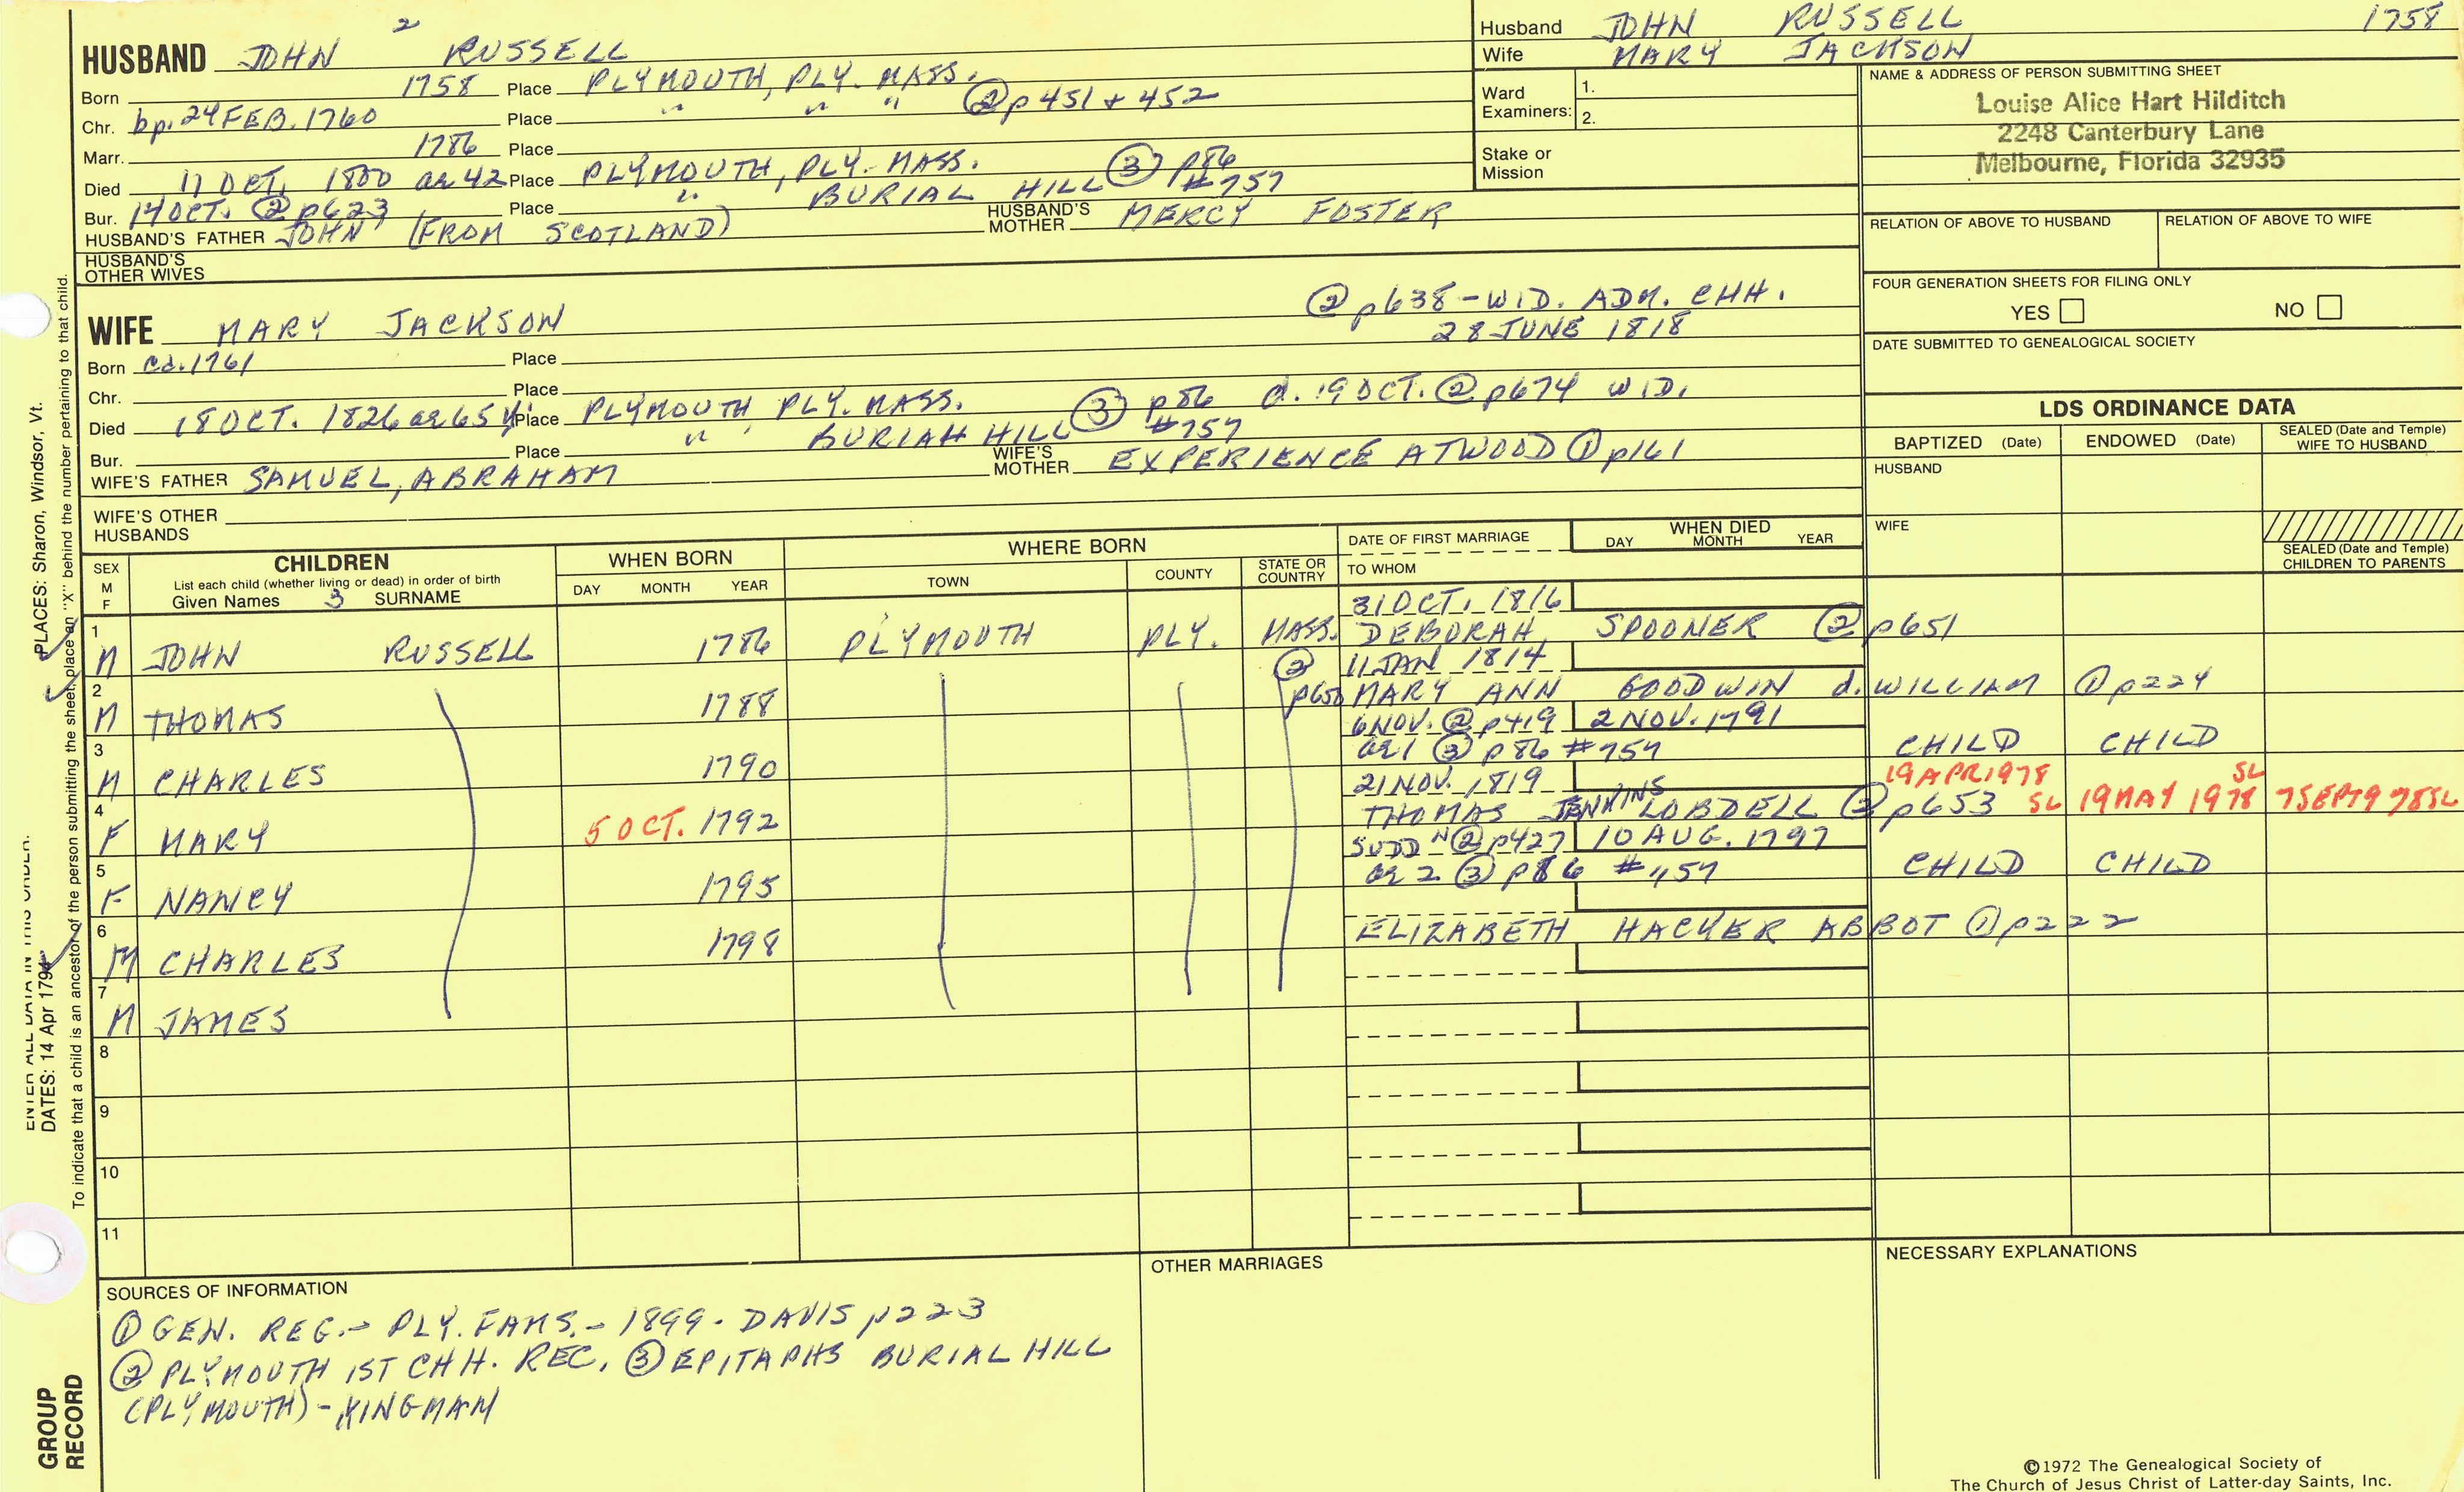 HUSBAND JOHN 2 RUSSELL
Born 1758 Place PLYMOUTH, PLY. MASS.
Chr. bp. 24 FEB. 1760 Place " " " ② p451 + 452
Marr. 1786 Place
Died 11 OCT. 1800 ae 42 Place PLYMOUTH, PLY. MASS. ③ p86
Bur. 14 OCT. ② p623 Place " BURIAL HILL #757
HUSBAND'S FATHER JOHN (FROM SCOTLAND) HUSBAND'S MOTHER MERCY FOSTER
HUSBAND'S OTHER WIVES
Husband JOHN RUSSELL 1758
Wife MARY JACKSON
Ward Examiners: 1.
2.
Stake or Mission
NAME & ADDRESS OF PERSON SUBMITTING SHEET
Louise Alice Hart Hilditch
2248 Canterbury Lane
Melbourne, Florida 32935
RELATION OF ABOVE TO HUSBAND RELATION OF ABOVE TO WIFE
FOUR GENERATION SHEETS FOR FILING ONLY
YES NO
DATE SUBMITTED TO GENEALOGICAL SOCIETY
WIFE MARY JACKSON ② p638 - WID. ADM. CHH.
28 JUNE 1818
Born ca. 1761 Place
Chr. Place
Died 18 OCT. 1826 ae 65 y. Place PLYMOUTH, PLY. MASS. ③ p86 d. 19 OCT. ② p674 WID.
Bur. Place " " BURIAH HILL #757
WIFE'S FATHER SAMUEL, ABRAHAM WIFE'S MOTHER EXPERIENCE ATWOOD ① p161
WIFE'S OTHER HUSBANDS
LDS ORDINANCE DATA
BAPTIZED (Date) ENDOWED (Date) SEALED (Date and Temple) WIFE TO HUSBAND
HUSBAND
WIFE
SEALED (Date and Temple) CHILDREN TO PARENTS
SEX M F CHILDREN WHEN BORN WHERE BORN DATE OF FIRST MARRIAGE WHEN DIED
List each child (whether living or dead) in order of birth
Given Names 3 SURNAME DAY MONTH YEAR TOWN COUNTY STATE OR COUNTRY TO WHOM DAY MONTH YEAR
31 OCT. 1816
1 M JOHN RUSSELL 1786 PLYMOUTH PLY. MASS. DEBORAH SPOONER ② p651
② 11 JAN 1814
2 M THOMAS 1788 p650 MARY ANN GOODWIN d. WILLIAM ① p224
6 NOV. ② p419 2 NOV. 1791
3 M CHARLES 1790 ae 1 ③ p86 #757 CHILD CHILD
21 NOV. 1819 19 APR 1978 SL
4 F MARY 5 OCT. 1792 THOMAS JENKINS LOBDELL ② p653 SL 19 MAY 1978 7 SEPT 978 SL
SUDDN ② p427 10 AUG. 1797
5 F NANCY 1795 ae 2 ③ p86 #757 CHILD CHILD
6 M CHARLES 1798 ELIZABETH HACKER ABBOT ① p222
7 M JAMES
8
9
10
11
SOURCES OF INFORMATION
① GEN. REG. - PLY. FAMS. - 1899 - DAVIS p223
② PLYMOUTH 1ST CHH. REC. ③ EPITAPHS BURIAL HILL
(PLYMOUTH) - KINGMAN
OTHER MARRIAGES
NECESSARY EXPLANATIONS
©1972 The Genealogical Society of
The Church of Jesus Christ of Latter-day Saints, Inc.
ENTER ALL DATA IN THIS ORDER:
DATES: 14 Apr 1794
PLACES: Sharon, Windsor, Vt.
To indicate that a child is an ancestor of the person submitting the sheet, place an "X" behind the number pertaining to that child.
GROUP
RECORD